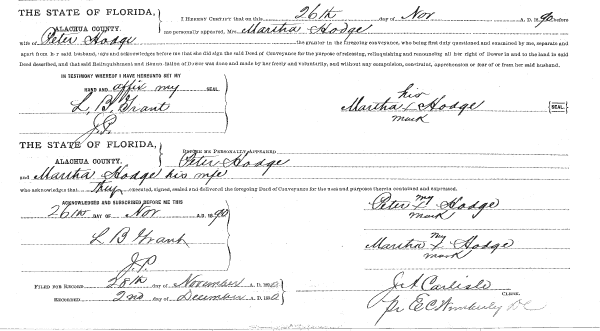 THE STATE OF FLORIDA, I HEREBY CERTIFY that on this 26th day of Nov A. D. 1890 before
ALACHUA COUNTY. me personally appeared, Mrs. Martha Hodge
wife of Peter Hodge the grantor in the foregoing conveyance, who being first duly questioned and examined by me, separate and
apart from her said husband, says and acknowledges before me that she did sign the said Deed of Conveyance for the purpose of releasing, relinquishing and renouncing all her right of Dower in and to the land in said
Deed described, and that said Relinquishment and Renunciation of Dower was done and made by her freely and voluntarily, and without any compulsion, constraint, apprehension or fear of or from her said husband.
IN TESTIMONY WHEREOF I HAVE HEREUNTO SET MY
HAND AND affix my SEAL
L. B. Grant
J. P.
his
Martha X Hodge {SEAL}
mark
THE STATE OF FLORIDA,
ALACHUA COUNTY.
BEFORE ME PERSONALLY APPEARED Peter Hodge
and Martha Hodge his wife
who acknowledges that they executed, signed, sealed and delivered the foregoing Deed of Conveyance for the uses and purposes therein contained and expressed.
ACKNOWLEDGED AND SUBSCRIBED BEFORE ME THIS
26th DAY OF Nov A.D. 1890
L B Grant
J. P.
my
Peter X Hodge
mark
my
Martha X Hodge
mark
FILED FOR RECORD 28th day of November A. D. 1890
RECORDED 2nd day of December A. D. 1890
J A Carlisle
CLERK.
pr E C Wimberly DC